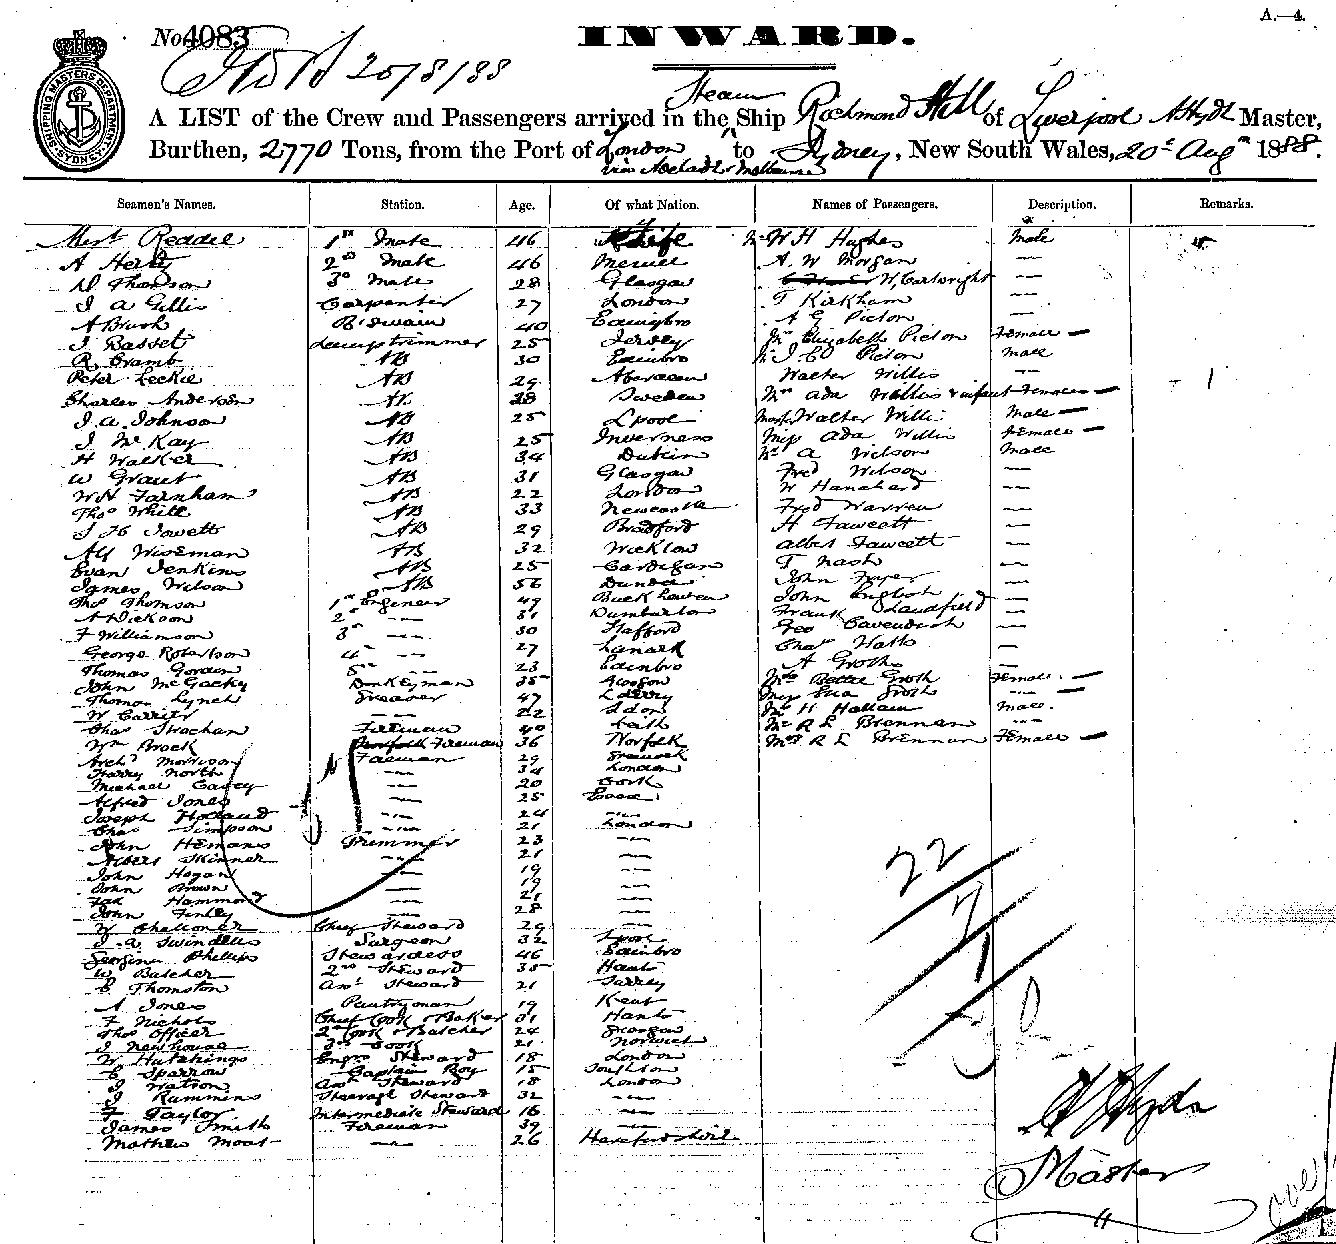 A.—4.
No 4083
INWARD.
20/8/88
SHIPPING MASTERS DEPARTMENT SYDNEY
Steam
A LIST of the Crew and Passengers arrived in the Ship Richmond Hill of Liverpool A Hyde Master,
Burthen, 2770 Tons, from the Port of London to Sydney, New South Wales, 20th Augt 1888.
via Adelaide & Melbourne
Seamen's Names. Station. Age. Of what Nation. Names of Passengers. Description. Remarks.
Reddie 1st Mate 46 Fife Mr W H Hughes Male
A Herd 2nd Mate 46 A. W Morgan —
Thomson 3rd Mate 28 Glasgow W. Cartwright —
J A Gillis Carpenter 27 London T Kirkham —
A Brush Boswain 40 Edinbro A G Picton —
J Basset Lamptrimmer 25 Jersey Mrs Elizabeth Picton Female —
R Cramb AB 30 Edinbro Picton Male
Peter Leckie AB 29 Aberdeen Walter Willis — 1
Charles Anderson AB 38 Sweden Mrs Ada Willis & infant Females —
J. A. Johnson AB 25 L'pool Mastr Walter Willis Male —
J McKay AB 25 Inverness Miss Ada Willis Female —
H Walker AB 34 Dublin Mr A Wilson Male
W Grant AB 31 Glasgow Fred Wilson —
W H Farnham AB 22 London W Hanchard —
Thos White AB 33 Newcastle Fred Warren —
J H Jowett AB 29 Bradford H Fawcett —
Alf Wiseman AB 32 Wicklow Albert Fawcett —
Evan Jenkins AB 25 Cardigan T Nash —
James Wilson AB 56 Dundee John —
Thos Thomson 1st Engineer 49 John English —
A Dickson 2nd — 31 Dumbarton Frank Landfield —
F Williamson 3rd — 30 Stafford Geo Cavendish —
George Robertson 4th — 27 Lanark Chas —
Thomas Gordon 5th — 23 Edinbro A Groth —
John Donkeyman 35 Glasgow Mrs Bertie Groth Female —
Thomas Lynch Greaser 47 L'derry Miss Eva Groth — —
W Carrier — 22 Ldon Mr H Hallam Male
Chas Strachan Fireman 40 Leith Mr R L Brennan —
Wm Brock Fireman 36 Norfolk Mrs R L Brennan Female —
Archd Morrison Fireman 29 Greenock
Harry North — 34 London
Michael Casey — 20 Cork
Alfred Jones — 25 Essex
Joseph Holland — 24 —
Chas Simpson — 21 London
John Hemans Trimmer 23 —
Albert Skinner — 21 —
John Hogan — 19 —
John Brown — 19 —
Hammond — 21 —
John Finley — 28 —
W Challoner Chief Steward 29 —
J. A. Swindells Surgeon 32 L'pool
Georgina Phillips Stewardess 46 Edinbro
W Butcher 2nd Steward 35 Hants
C Thomston Asst Steward 21 Surrey
A Jones Pantryman 19 Kent
F Nichols Chief Cook & Baker 31 Hants
Thos Officer 2nd Cook & Butcher 24 Glasgow
J Newhouse 3rd Cook 21 Norwich
W Hutchings Engrs Steward 18 London
C Sparrow Captain Boy 15 Southton
J Watson Asst Steward 18 London
J Rummins Steerage Steward 32 —
F Taylor Intermediate Steward 16 —
James Smith Fireman 39 —
Mathew Moat — 26 Herefordshire
22
7
1
A Hyde
Master